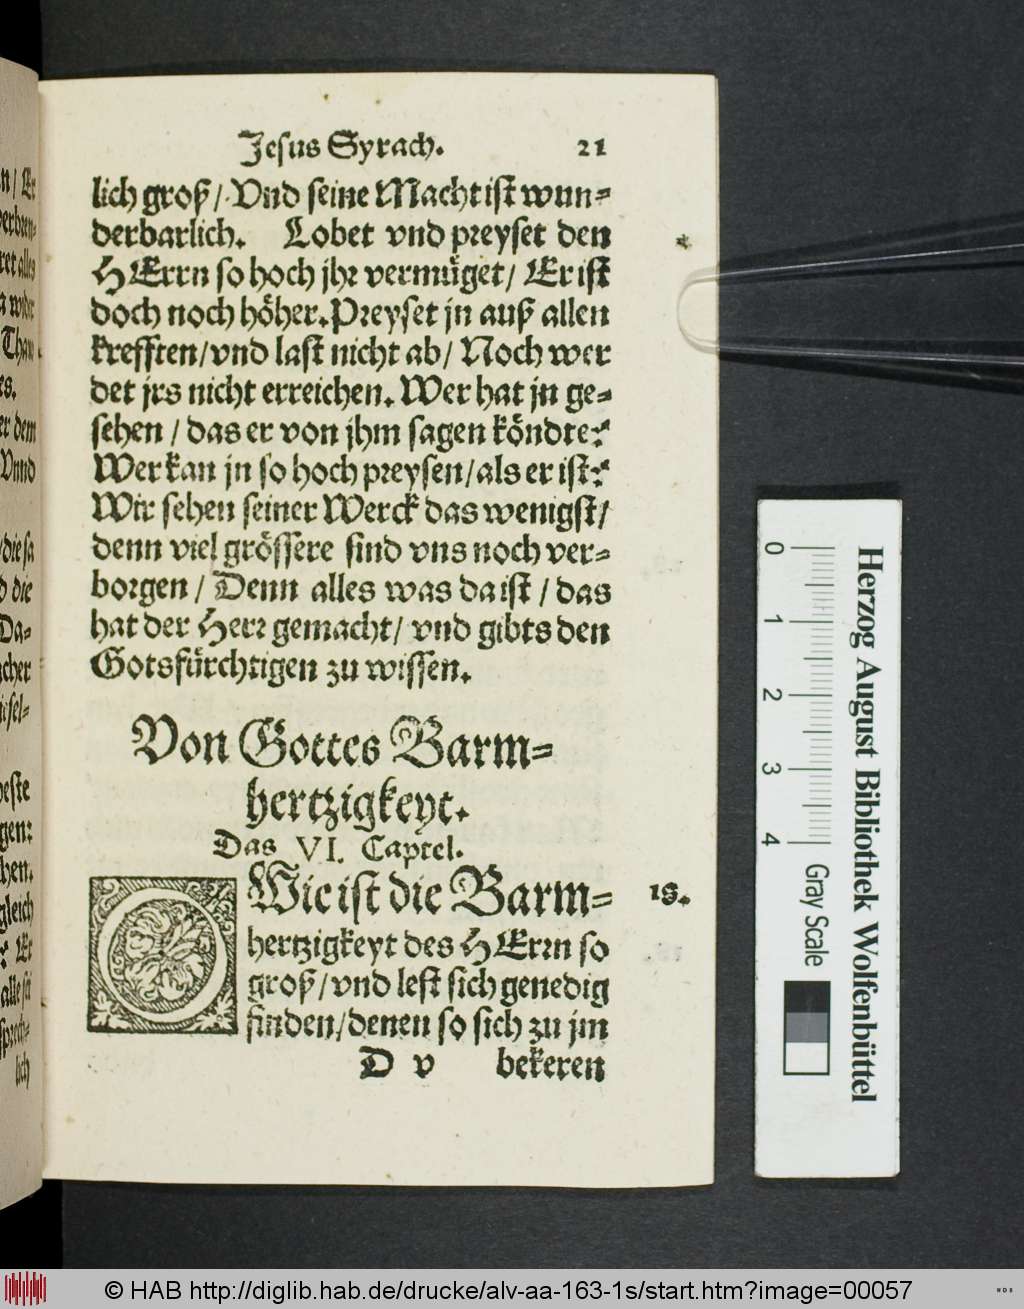 Jesus Syrach. 21
lich groß / Vnd seine Macht ist wun=
derbarlich. Lobet vnd preyset den
HErrn so hoch jhr vermüget / Er ist
doch noch höher. Preyset jn auß allen
krefften / vnd last nicht ab / Noch wer
det jrs nicht erreichen. Wer hat jn ge=
sehen / das er von jhm sagen köndte?
Wer kan jn so hoch preysen / als er ist?
Wir sehen seiner Werck das wenigst /
denn viel grössere sind vns noch ver=
borgen / Denn alles was da ist / das
hat der Herr gemacht / vnd gibts den
Gotsfürchtigen zu wissen.
Von Gottes Barm=
hertzigkeyt.
Das VI. Captel.
O Wie ist die Barm= 18.
hertzigkeyt des HErrn so
groß / vnd lest sich genedig
finden / denen so sich zu jm
D v bekeren
er dem
Vnnd
die
Da=
cher
gen:
hen.
gleich
lich
Herzog August Bibliothek Wolfenbüttel
0 1 2 3 4
Gray Scale
© HAB http://diglib.hab.de/drucke/alv-aa-163-1s/start.htm?image=00057